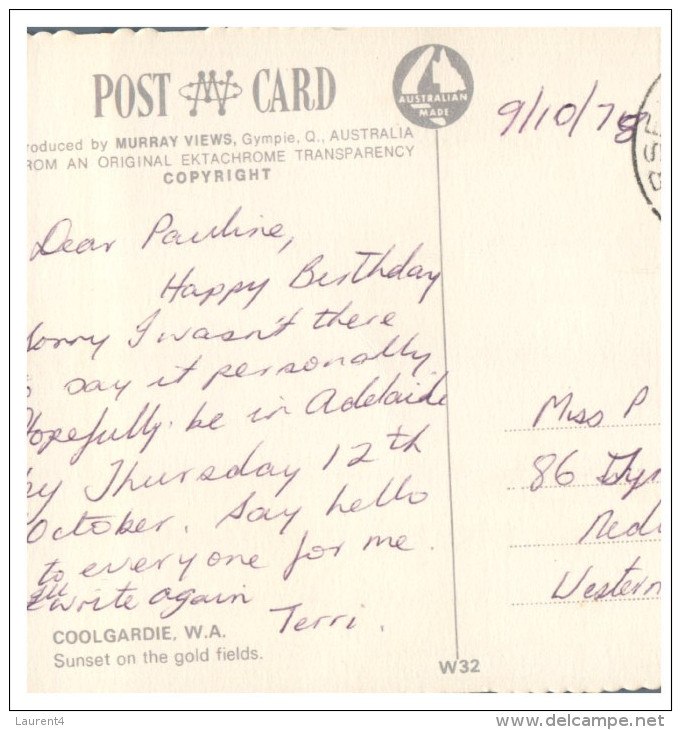 POST CARD
AUSTRALIAN
MADE
roduced by MURRAY VIEWS, Gympie, Q., AUSTRALIA
ROM AN ORIGINAL EKTACHROME TRANSPARENCY
COPYRIGHT
9/10/78
Dear Pauline,
Happy Birthday
Sorry I wasn't there
say it personally.
Hopefully be in Adelaide
by Thursday 12th
October. Say hello
to everyone for me.
write again
Terri.
Miss P
86
Ned
Western
COOLGARDIE, W.A.
Sunset on the gold fields.
W32
Laurent4
www.delcampe.net